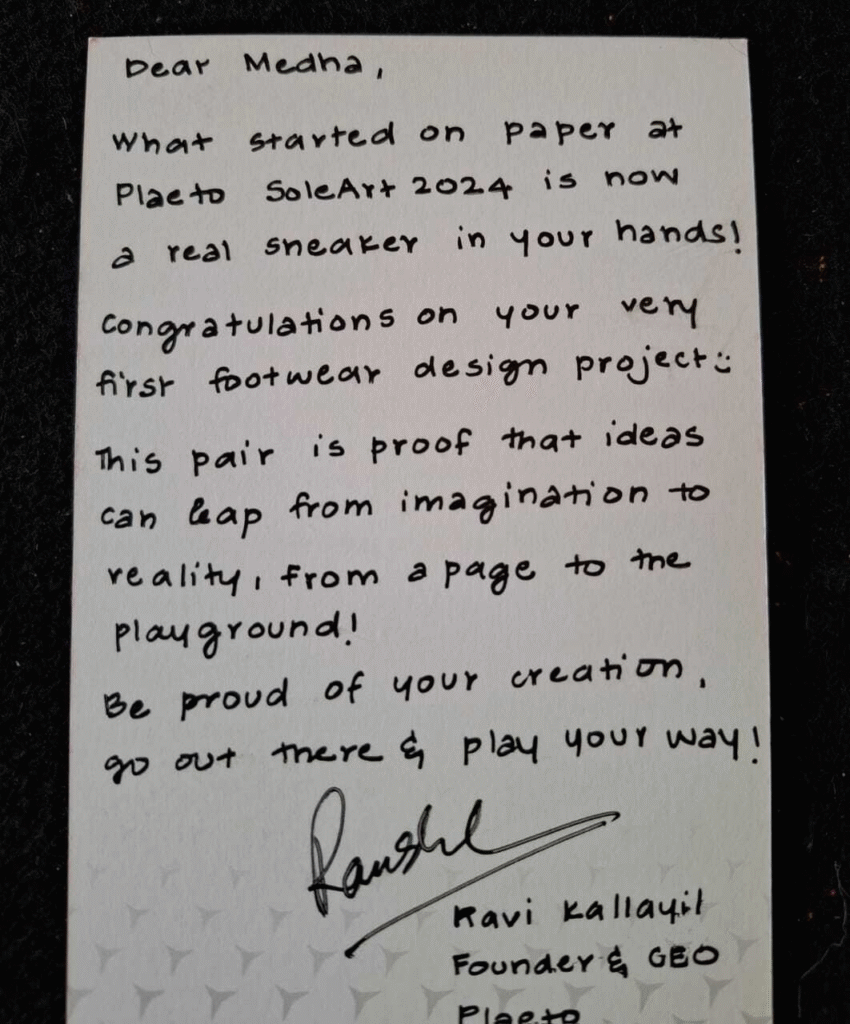 Dear Medha,
What started on paper at
Plaeto SoleArt 2024 is now
a real sneaker in your hands!
Congratulations on your very
first footwear design project:)
This pair is proof that ideas
can leap from imagination to
reality, from a page to the
playground!
Be proud of your creation,
go out there & play your way!
Ravi Kallayil
Founder & CEO
Plaeto